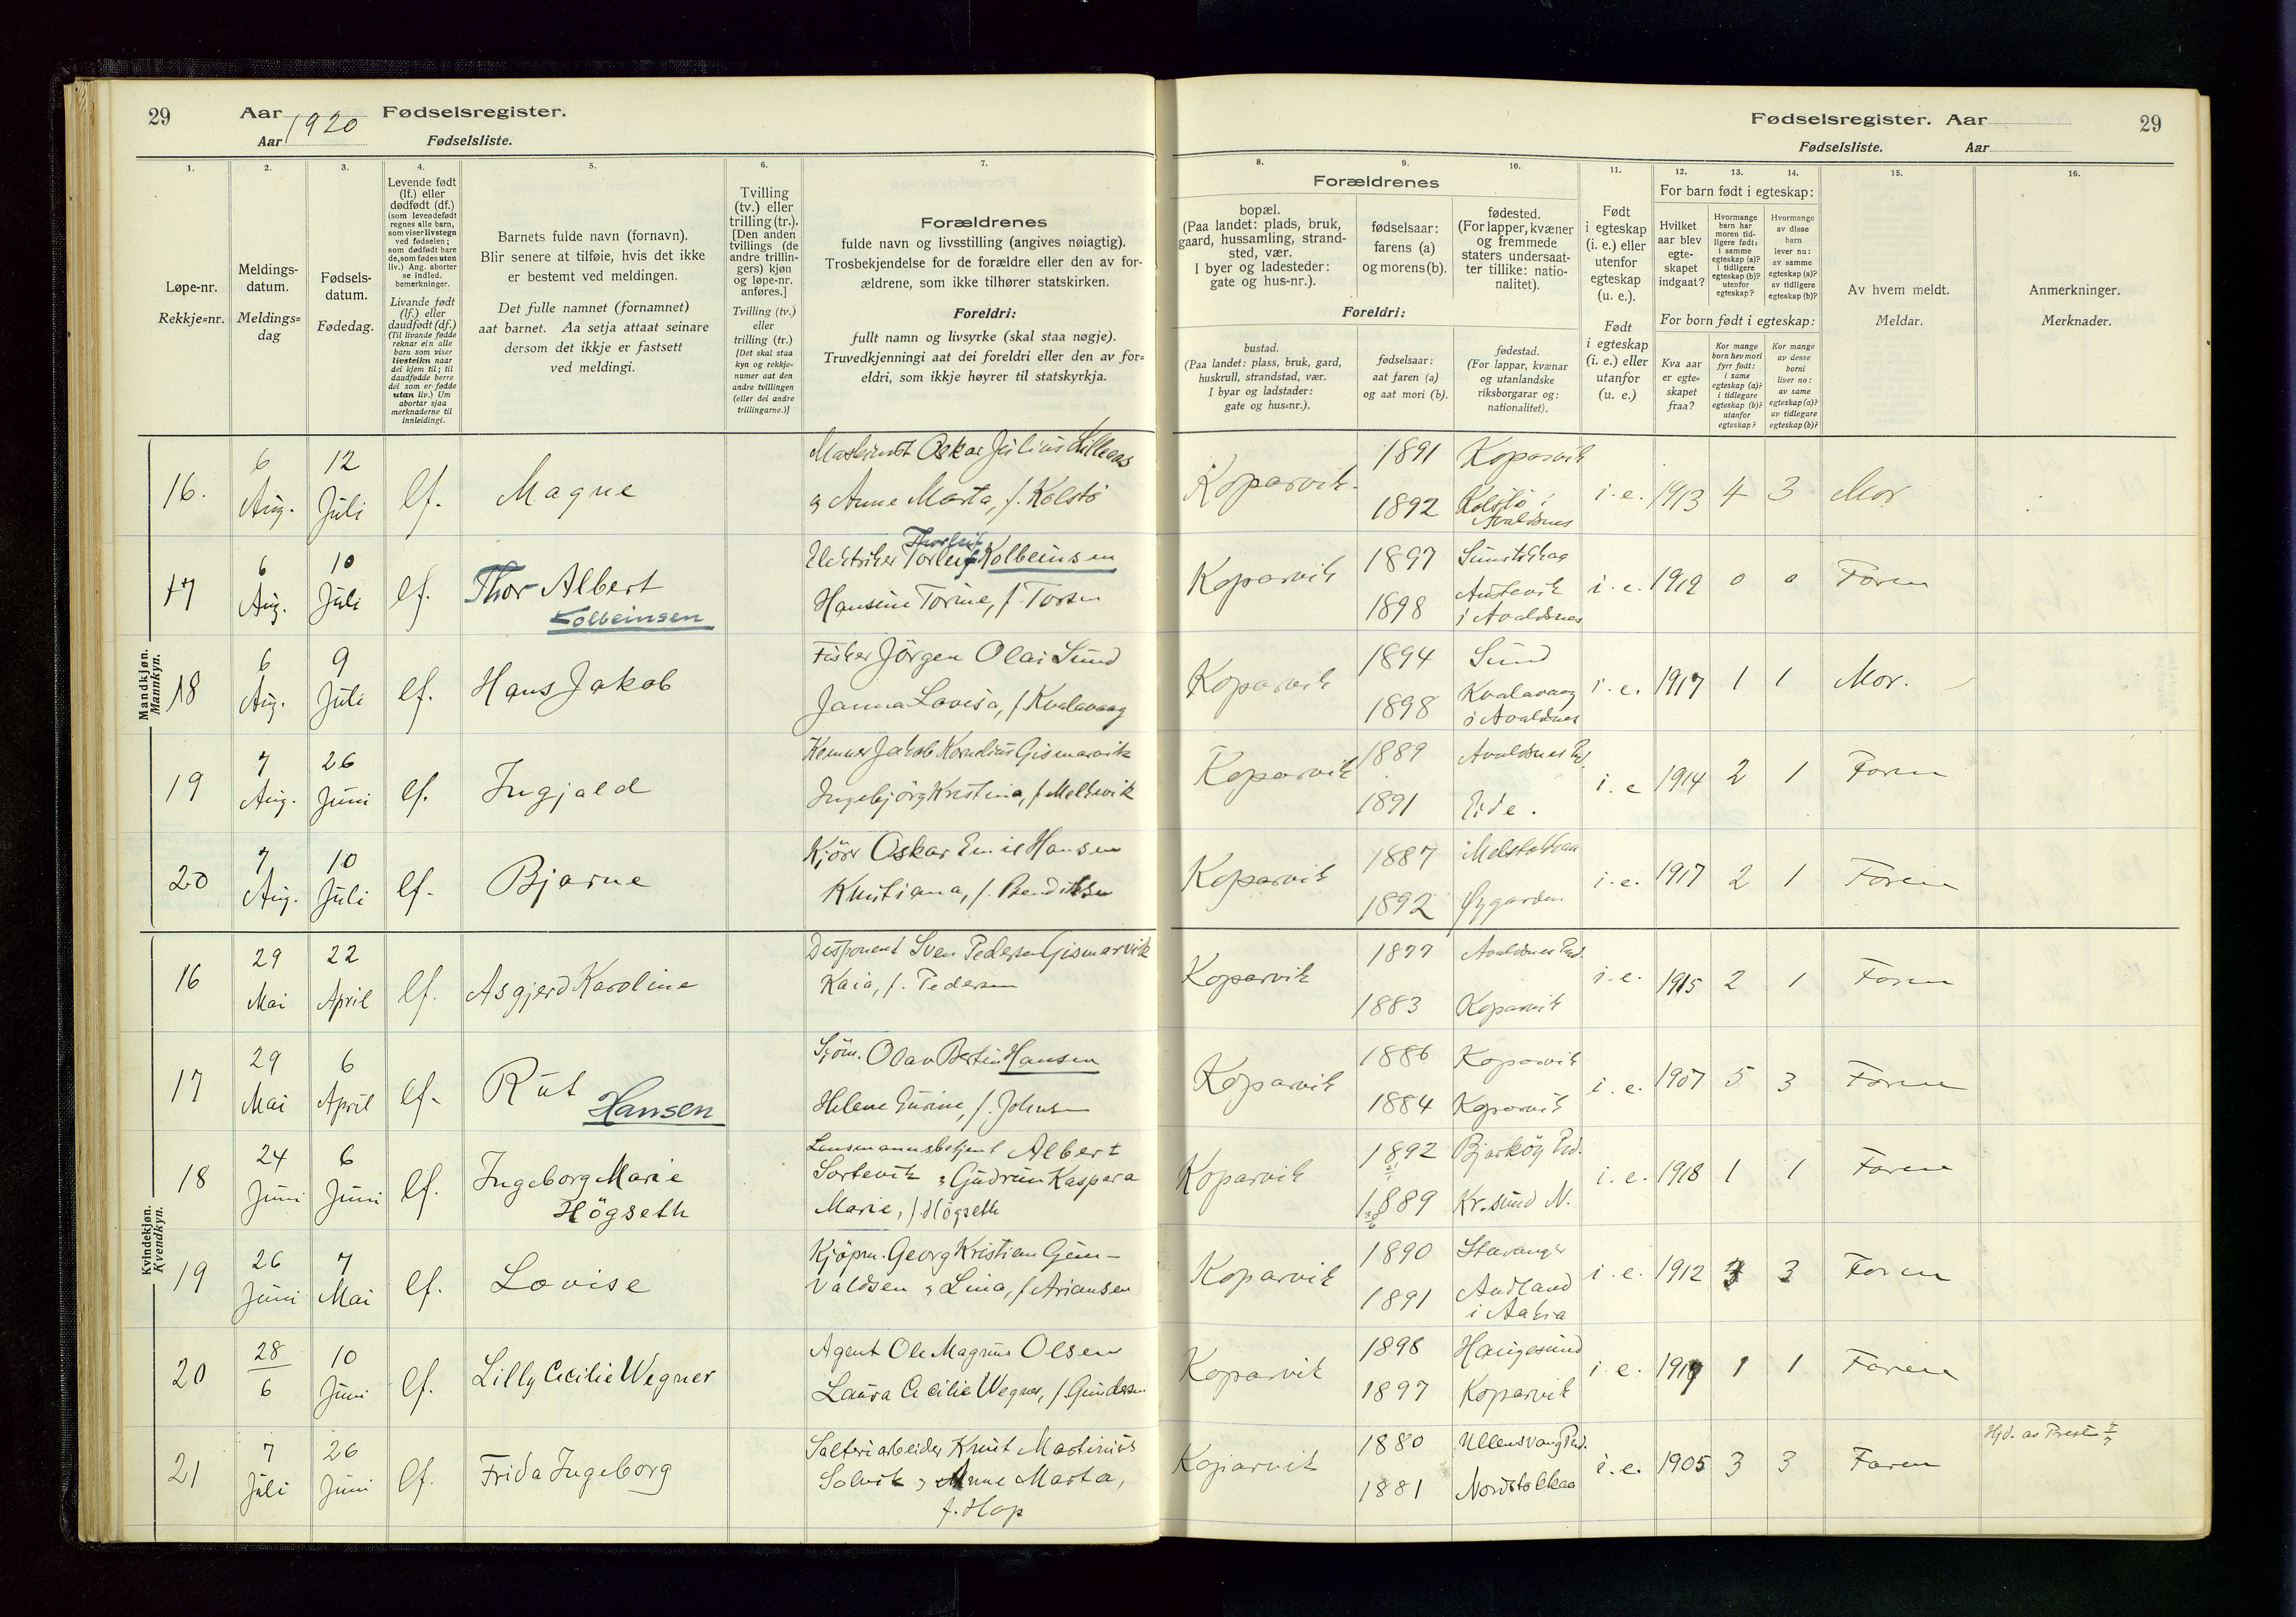 29 Aar 1920 Fødselsregister.
Aar Fødselsliste.
Fødselsregister. Aar 29
Fødselsliste. Aar
1. 2. 3. 4. 5. 6. 7.
Løpe-nr.
Rekkje=nr.
Meldings-
datum.
Meldings=
dag
Fødsels-
datum.
Fødedag.
Levende født
(lf.) eller
dødfødt (df.)
(som levendefødt
regnes alle barn,
som viser livstegn
ved fødselen;
som dødfødt bare
de, som fødes uten
liv.) Ang. aborter
se indled.
bemerkninger.
Livande født
(lf.) eller
daudfødt (df.)
(Til livande fødde
reknar ein alle
barn som viser
livsteikn naar
dei kjem til; til
daudfødde berre
dei som er fødde
utan liv.) Um
abortar sjaa
merknaderne til
innleidingi.
Barnets fulde navn (fornavn).
Blir senere at tilføie, hvis det ikke
er bestemt ved meldingen.
Det fulle namnet (fornamnet)
aat barnet. Aa setja attaat seinare
dersom det ikkje er fastsett
ved meldingi.
Tvilling
(tv.) eller
trilling (tr.).
[Den anden
tvillings (de
andre trillin-
gers) kjøn
og løpe-nr.
anføres.]
Tvilling (tv.)
eller
trilling (tr.)
[Det skal staa
kyn og rekkje-
numer aat den
andre tvillingen
(eller dei andre
trillingarne.)]
Forældrenes
fulde navn og livsstilling (angives nøiagtig).
Trosbekjendelse for de forældre eller den av for-
ældrene, som ikke tilhører statskirken.
Foreldri:
fullt namn og livsyrke (skal staa nøgje).
Truvedkjenningi aat dei foreldri eller den av for=
eldri, som ikkje høyrer til statskyrkja.
8. 9. 10. 11. 12. 13. 14. 15. 16.
Forældrenes
bopæl.
(Paa landet: plads, bruk,
gaard, hussamling, strand-
sted, vær.
I byer og ladesteder:
gate og hus-nr.).
fødselsaar:
farens (a)
og morens (b).
fødested.
(For lapper, kvæner
og fremmede
staters undersaat-
ter tillike: natio-
nalitet).
Foreldri:
bustad.
(Paa landet: plass, bruk, gard,
huskrull, strandstad, vær.
I byar og ladstader:
gate og hus=nr.).
fødselsaar:
aat faren (a)
og aat mori (b).
fødestad.
(For lappar, kvænar
og utanlandske
riksborgarar og:
nationalitet).
Født
i egteskap
(i. e.) eller
utenfor
egteskap
(u. e.).
Født
i egteskap
(i. e.) eller
utanfor
(u. e.)
For barn født i egteskap:
Hvilket
aar blev
egte-
skapet
indgaat?
Hvormange
barn har
moren tid-
ligere født:
i samme
egteskap (a)?
i tidligere
egteskap (b)?
utenfor
egteskap?
Hvormange
av disse
barn
lever nu:
av samme
egteskap (a)?
av tidligere
egteskap (b)?
For born født i egteskap:
Kva aar
er egte=
skapet
fraa?
Kor mange
born hev mori
fyrr født:
i same
egteskap (a)?
i tidlegare
egteskap (b)?
utanfor
egteskap?
Kor mange
av desse
borni
liver no:
av same
egteskap (a)?
av tidlegare
egteskap (b)?
Av hvem meldt.
Meldar.
Anmerkninger.
Merknader.
Mandkjøn.
Mannkyn.
16. 6 Aug. 12 Juli lf. Magne
Oskar Julius
& Anne Marta, f. Kolstö
Koparvik. 1891 Koparvik
1892 Kolstö i
Avaldsnes
i. e. 1913 4 3 Mor
17 6 Aug. 10 Juli lf. Thor Albert
Kolbeinsen
Thorleif
Elektriker Torleif Kolbeinsen
Hansine Torine, f.
Koparvik 1897
1898
i Avaldsnes
i. e. 1919 0 0 Faren
18 6 Aug. 9 Juli lf. Hans Jakob
Fisker Jörgen Olai Sund
Janna Lovisa, f. Kvalavaag
Koparvik 1894 Sund
1898 Kvalavaag
i Avaldsnes
i. e. 1917 1 1 Mor.
19 7 Aug. 26 Juni lf. Ingjald
Kemner Jakob Kornelius Gismarvik
Ingebjörg Kristina, f. Meltevik
Koparvik 1889 Avaldsnes Pd.
1891 Eide.
i. e 1914 2 1 Faren
20 7 Aug. 10 Juli lf. Bjarne
Oskar Emil Hansen
Kristiana, f. Bendiksen
Koparvik 1887
1892 Øygarden
i. e. 1917 2 1 Faren
Kvindekjøn.
Kvendkyn.
16 29 Mai 22 April lf. Asgjerd Karoline
Disponent Sven Pedersen Gismarvik
Kaia, f. Pedersen
Koparvik 1877 Avaldsnes Pd.
1883 Koparvik
i. e. 1915 2 1 Faren
17 29 Mai 6 April lf. Rut
Hansen
Sjöm. Olav Bertin Hansen
Helene Gurine, f. Johnsen
Koparvik 1886 Koparvik
1884 Koparvik
i. e. 1907 5 3 Faren
18 24 Juni 6 Juni lf. Ingeborg Marie
Högseth
Lensmannsbetjent Albert
Sortevik & Gudrun Kaspara
Marie, f. Högseth
Koparvik 1892 Bjarköy Pd.
1889 Kr.sund N.
i. e. 1918 1 1 Faren
19 26 Juni 7 Mai lf. Lovise
Kjöpm. Georg Kristian Gun-
valdsen & Lina, f. Ariansen
Koparvik 1890 Stavanger
1891 Aadland
i Aakra
i. e. 1912 3 3 Faren
20 28/6 10 Juni lf. Lilly Cecilie Wegner
Agent Ole Magnus Olsen
Laura Cecilie Wegner, f. Gundersen
Koparvik 1898 Haugesund
1897 Koparvik
i. e. 1919 1 1 Faren
21 7 Juli 26 Juni lf. Frida Ingeborg
Salteriarbeider Knut Martinius
Solvik & Anne Marta,
f. Hop
Koparvik 1880 Ullensvang Pd.
1881 Nordstokkaa
i. e. 1905 3 3 Faren
Hjd. av Prest